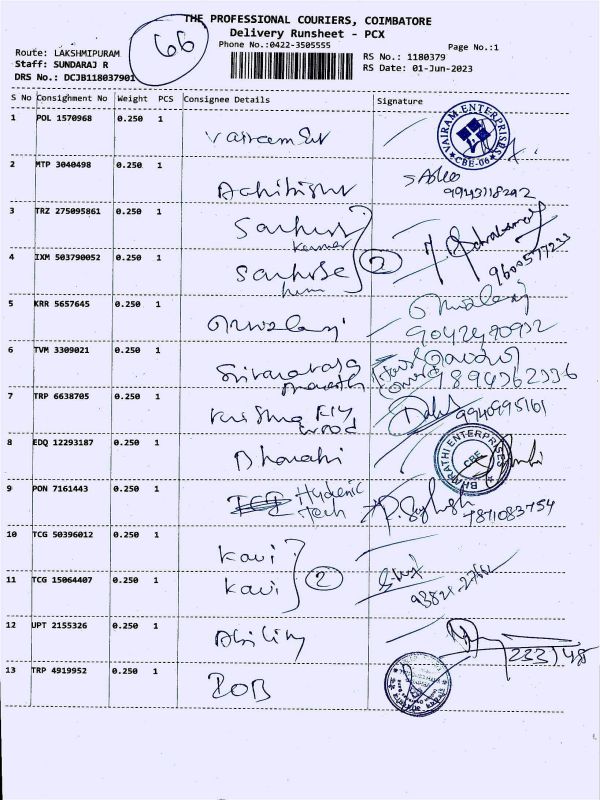 THE PROFESSIONAL COURIERS, COIMBATORE
Delivery Runsheet - PCX
Phone No.:0422-3505555
Page No.:1
66
Route: LAKSHMIPURAM
Staff: SUNDARAJ R
DRS No.: DCJB118037901
RS No.: 1180379
RS Date: 01-Jun-2023
S No Consignment No Weight PCS Consignee Details Signature
1 POL 1570968 0.250 1
VAIRAM ENTERPRISES
CBE-06
2 MTP 3040498 0.250 1
9943118292
3 TRZ 275095861 0.250 1
2
9600577233
4 IXM 503790052 0.250 1
5 KRR 5657645 0.250 1
6 TVM 3309021 0.250 1
7 TRP 6638705 0.250 1 Krishna Ply
wood
8 EDQ 12293187 0.250 1 Bharathi
BHARATHI ENTERPRISES
CBE
9 PON 7161443 0.250 1 Hygienic
Tech
10 TCG 50396012 0.250 1 Kavi
2
11 TCG 15064407 0.250 1 Kavi
12 UPT 2155326 0.250 1 Ability
13 TRP 4919952 0.250 1 BOB